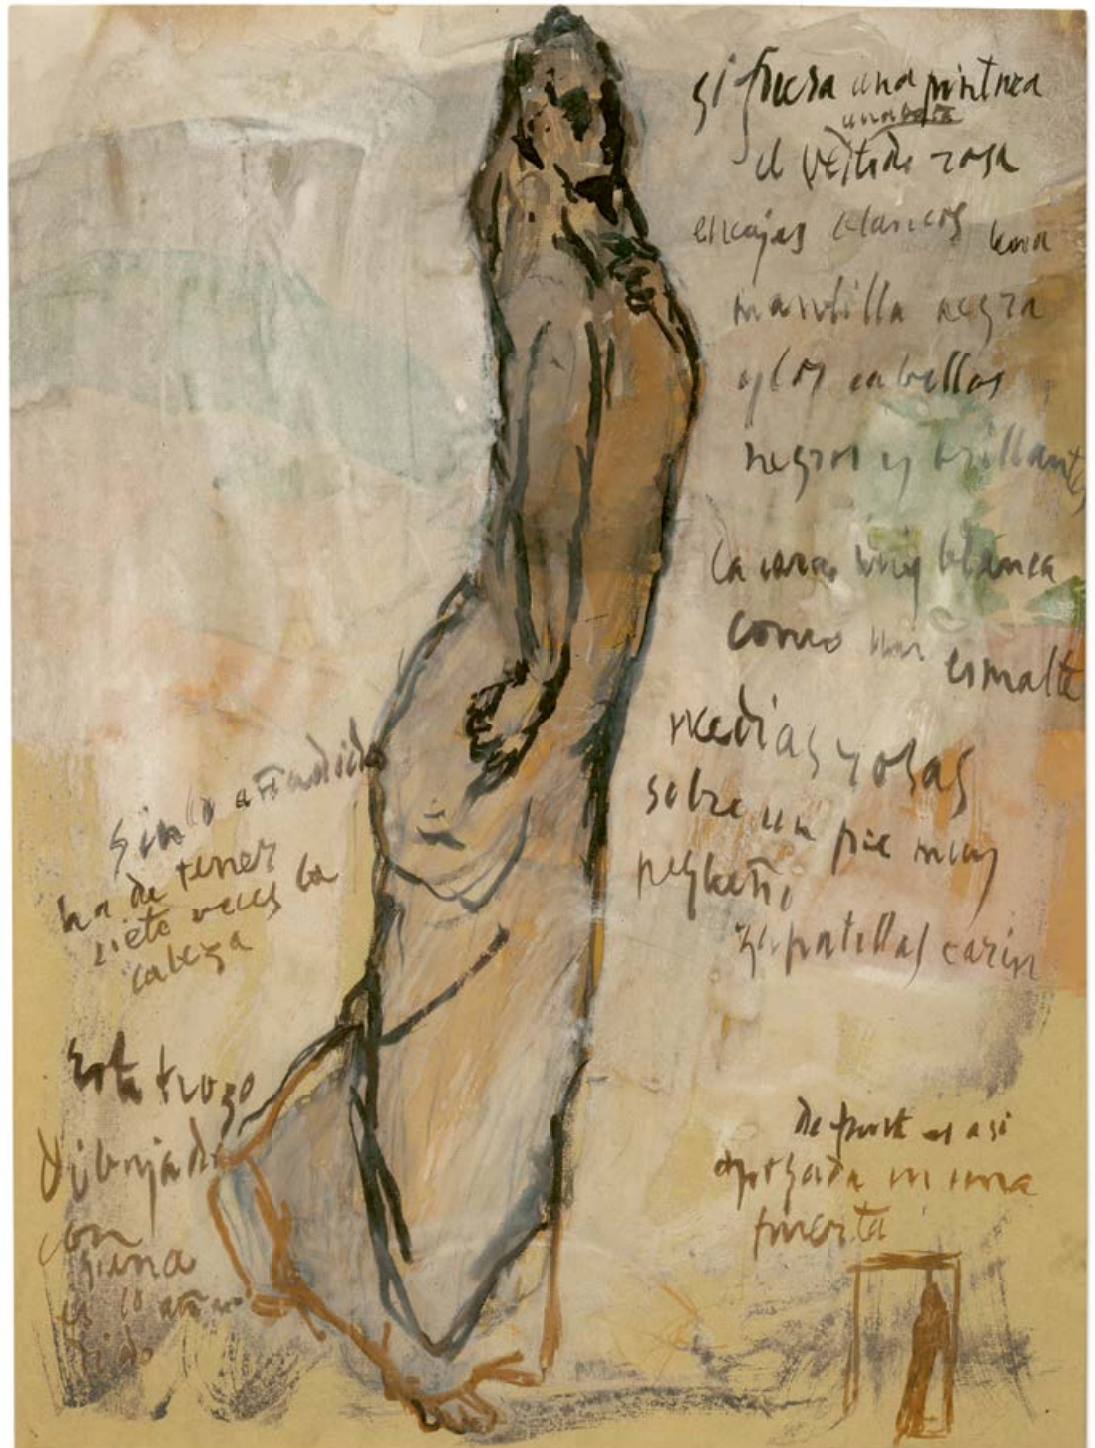 si fuera una pintura
una bata
el vestido rosa
encajes blancos
mantilla negra
y los cabellos
negros y brillantes
la cara muy blanca
como un esmalte
medias rosas
sobre un pie muy
pequeño
zapatillas carin
sin lo añadido
ha de tener
siete veces la
cabeza
este trozo
dibujado
con
siena
es lo aña
dido
de frente es asi
apoyada en una
puerta